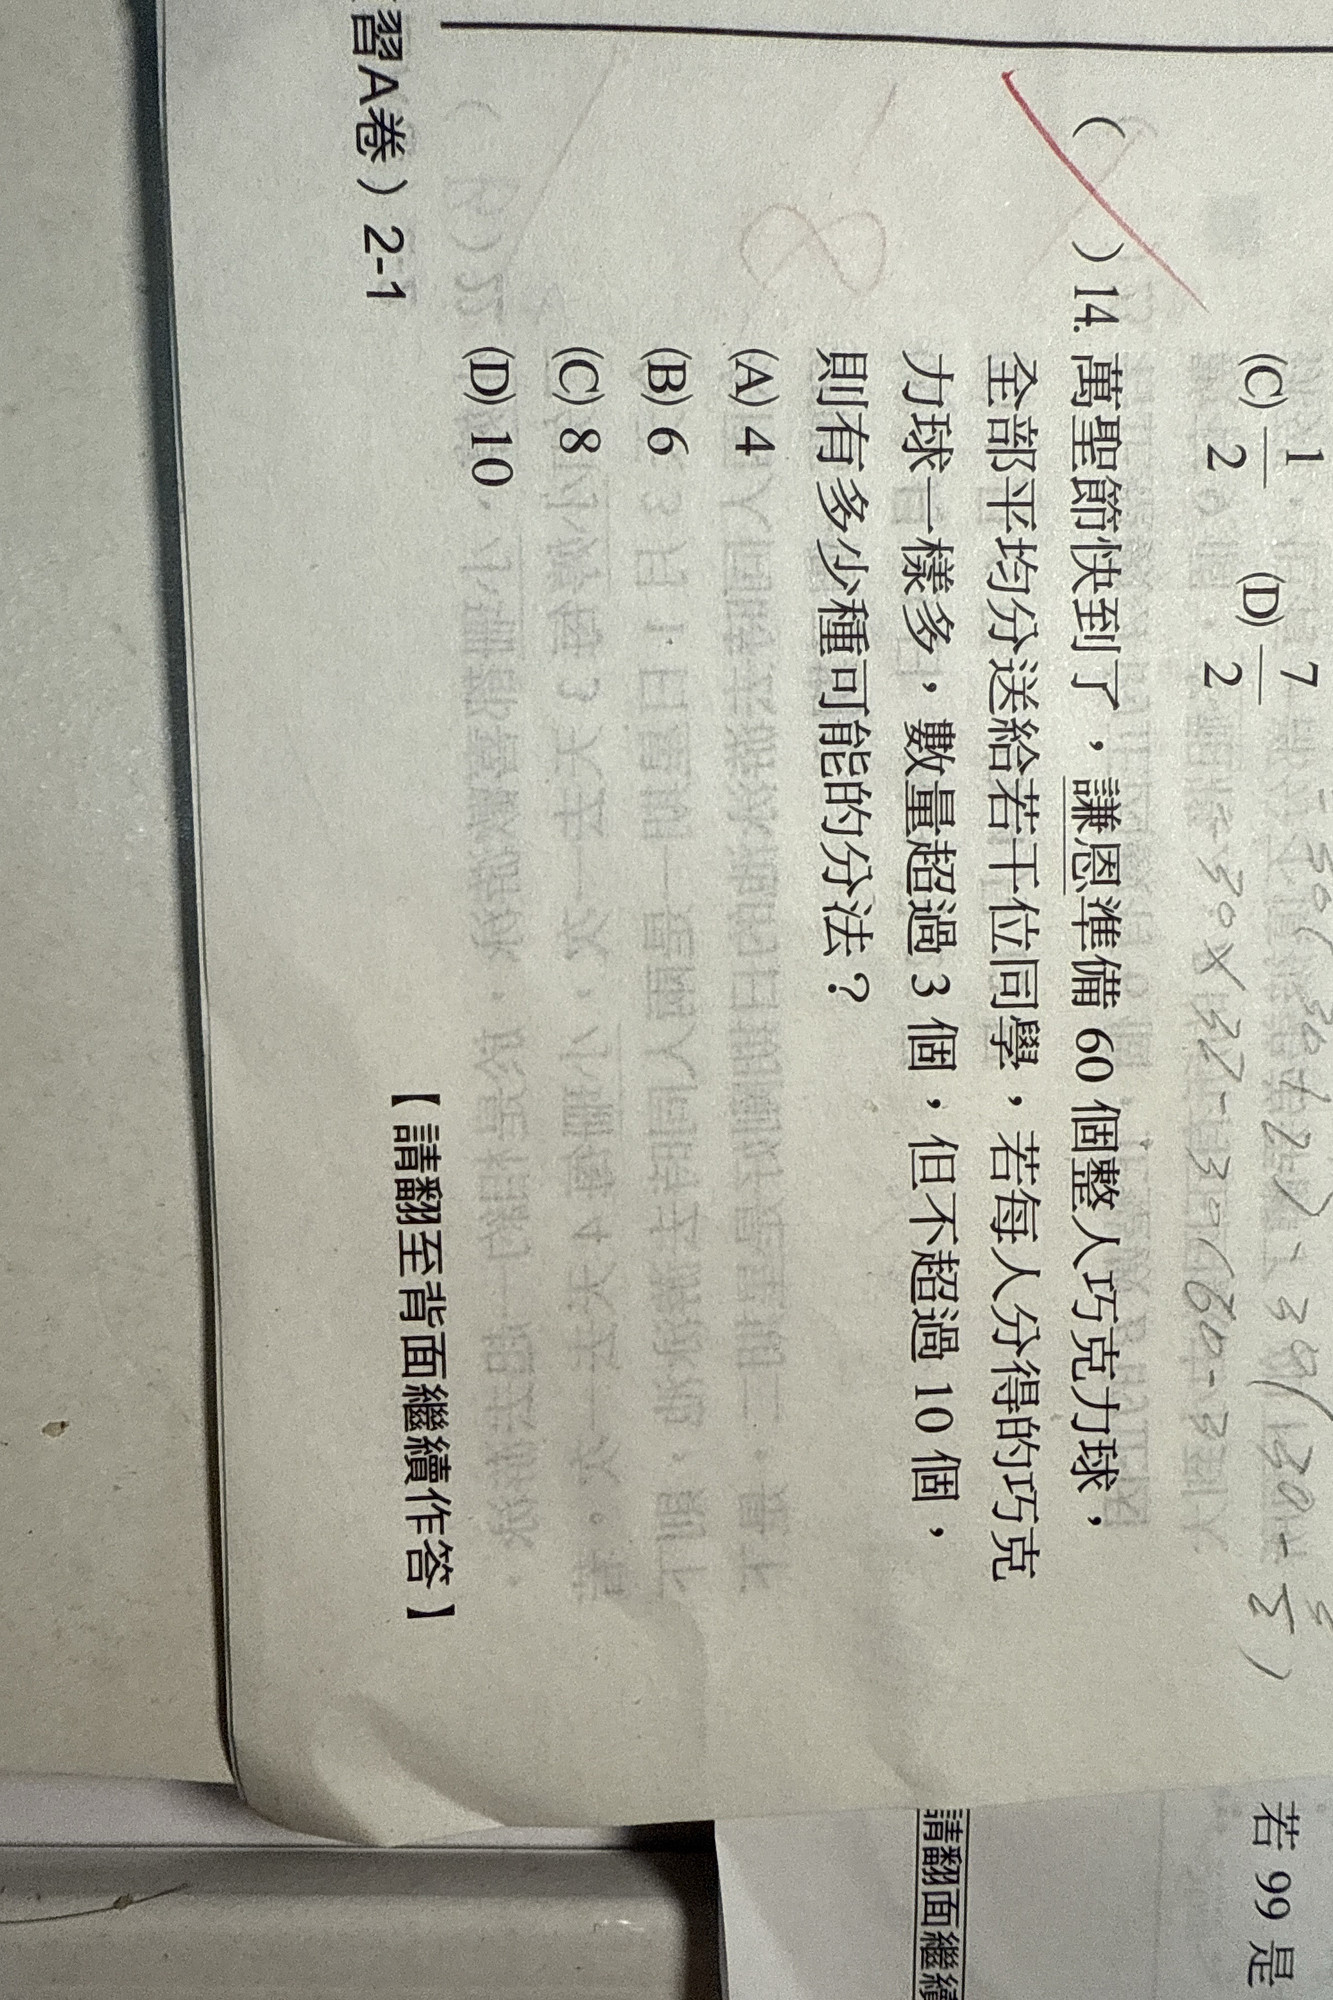 (C) 1/2 (D) 7/2
( )14. 萬聖節快到了，謙恩準備 60 個整人巧克力球，
全部平均分送給若干位同學，若每人分得的巧克
力球一樣多，數量超過 3 個，但不超過 10 個，
則有多少種可能的分法？
(A) 4
(B) 6
(C) 8
(D) 10
【請翻至背面繼續作答】
習A卷）2-1
若 99 是
請翻面繼續